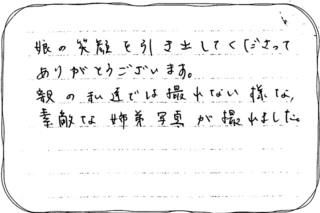 娘の笑顔を引き出してくださって
ありがとうございます。
親の私達では撮れない様な、
素敵な姉弟写真が撮れました。